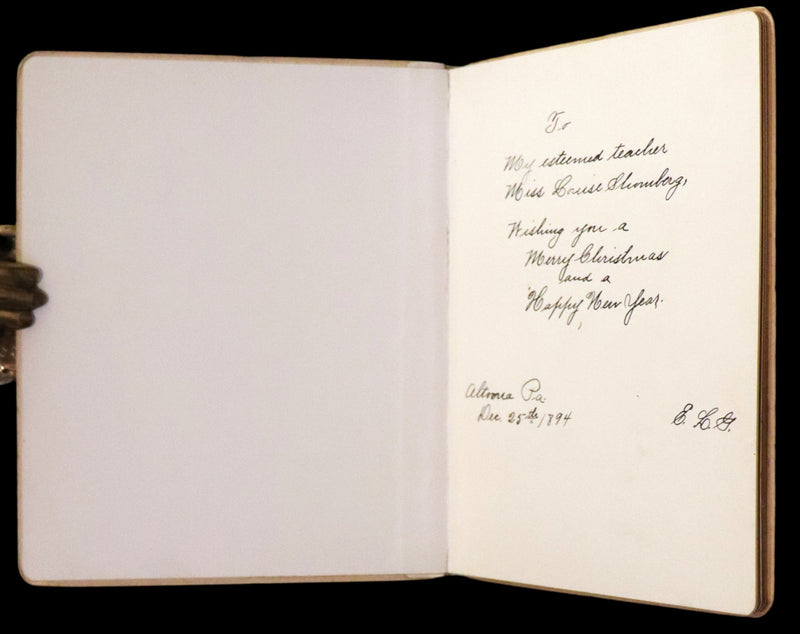 To
My esteemed teacher
Miss Louise Shomberg,
Wishing you a
Merry Christmas
and a
Happy New Year.
Altoona Pa.
Dec. 25th 1894
E. L. G.